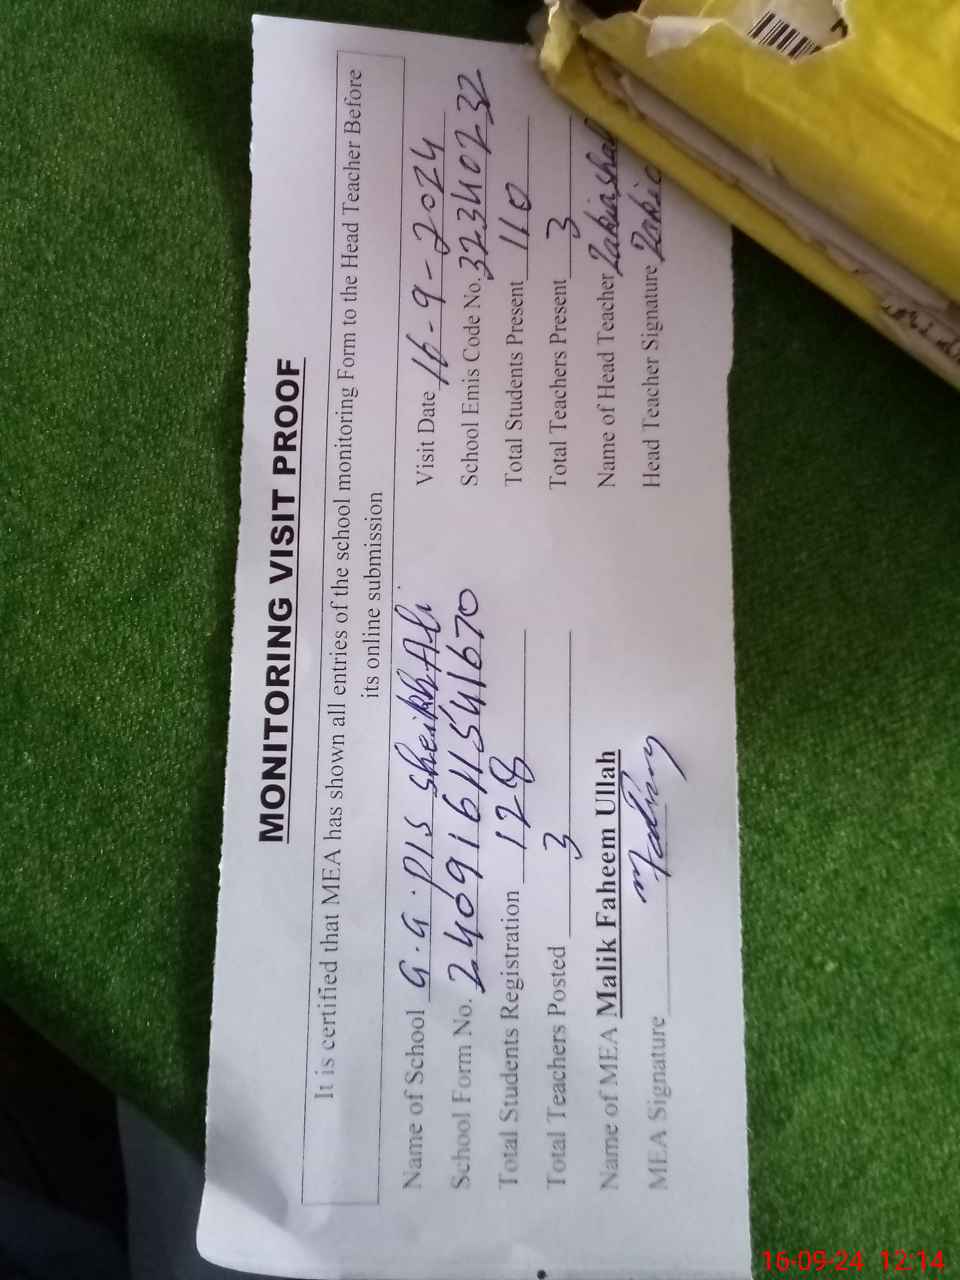 MONITORING VISIT PROOF
It is certified that MEA has shown all entries of the school monitoring Form to the Head Teacher Before
its online submission
Name of School G.G.P/S Sheikh Ali Visit Date 16-9-2024
School Form No. 24091611541670 School Emis Code No. 32340232
Total Students Registration 128 Total Students Present 110
Total Teachers Posted 3 Total Teachers Present 3
Name of MEA Malik Faheem Ullah Name of Head Teacher Zakia
MEA Signature Head Teacher Signature
16-09-24 12:14